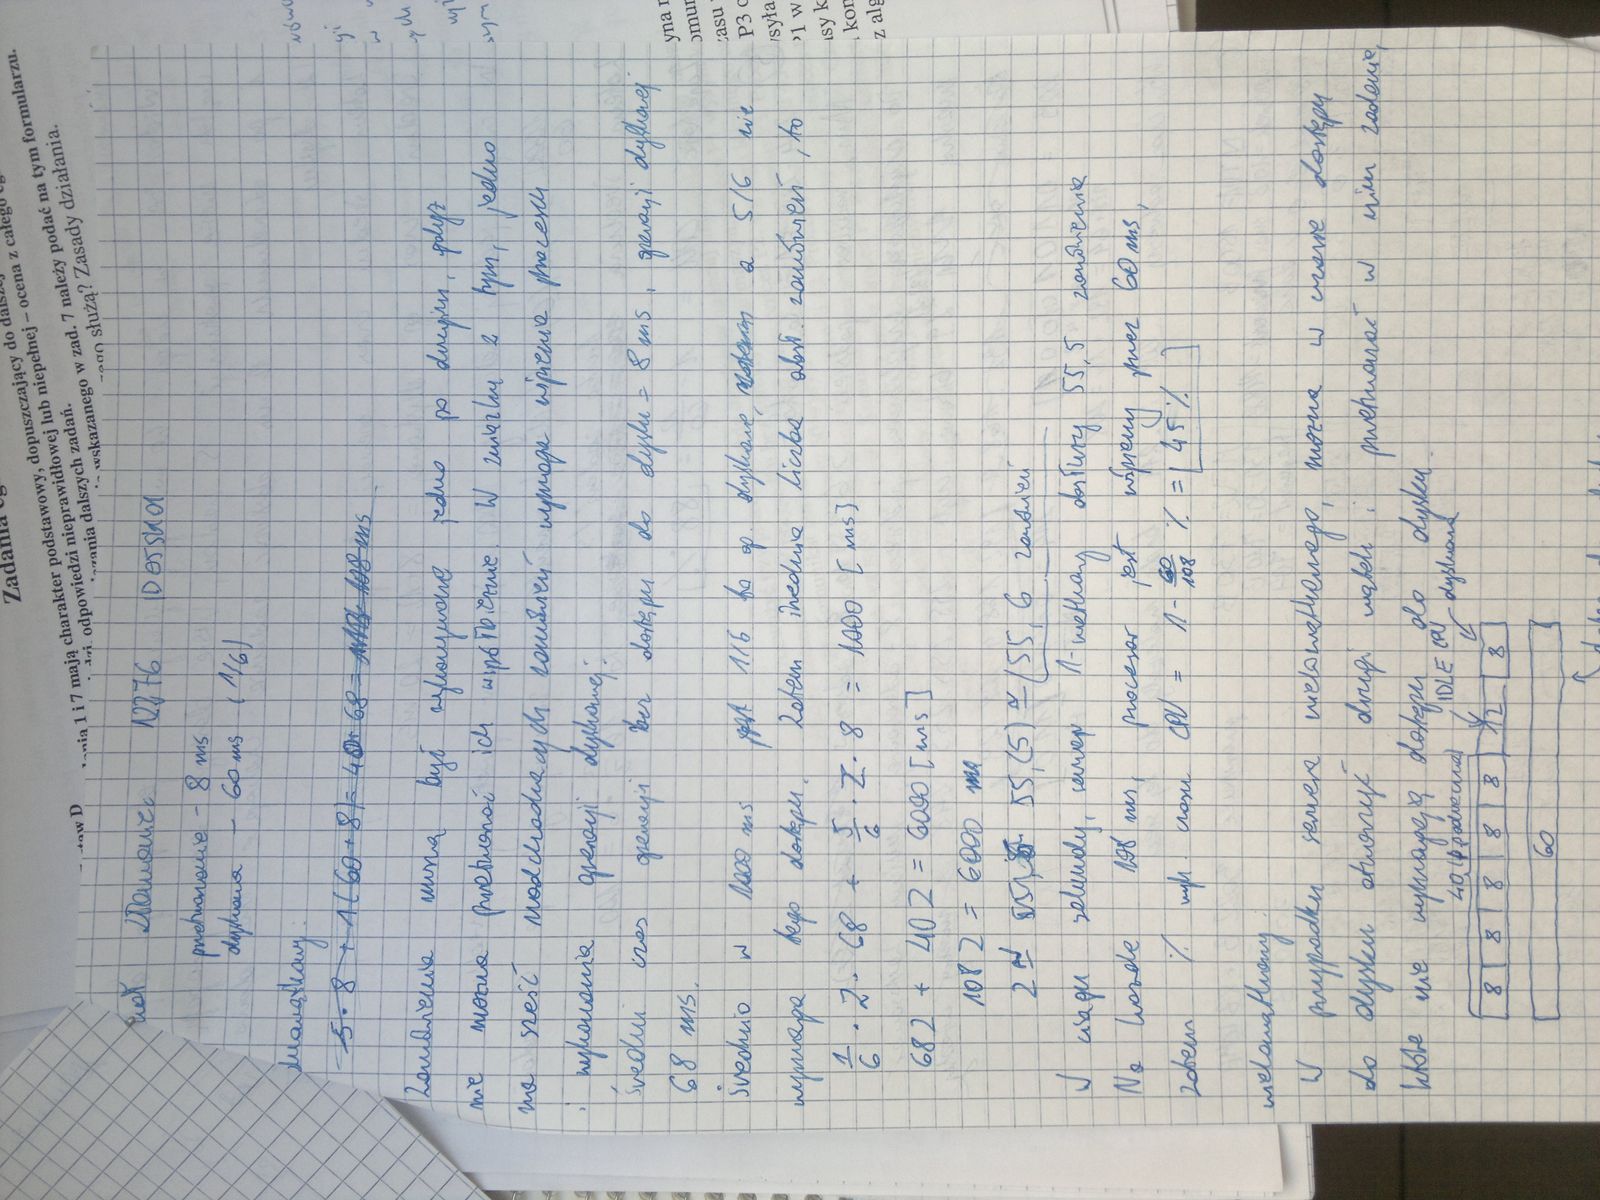 Zadania eg
taw D
dania 1 i 7 mają charakter podstawowy, dopuszczający do dalszej
dzi, odpowiedzi nieprawidłowej lub niepełnej – ocena z całego eg
zania dalszych zadań.
wskazanego w zad. 7 należy podać na tym formularzu.
zego służą? Zasady działania.
12276
przetwarzanie - 8 ms
dyskowa - 60 ms (1/6)
5 · 8 + 1(60 + 8) = 40 + 68 = 108 ms
Zamówienia muszą być wykonywane jedno po drugim, gdyż
nie można przetwarzać ich współbieżnie. W związku z tym, jedno
na sześć nadchodzących zamówień wymaga uśpienia procesu
i wykonania operacji dyskowej.
Średni czas operacji bez dostępu do dysku = 8 ms, operacji dyskowej
68 ms.
Średnio w 1000 ms jest 1/6 to op. dyskowe, a 5/6 nie
wymaga tego dostępu. Zatem średnia liczba obsł. zamówień, to
1/6 · Z · 68 + 5/6 · Z · 8 = 1000 [ms]
68Z + 40Z = 6000 [ms]
108Z = 6000 ms
Z ≅ 55,(5) ≅ 55,6 zamówień
W ciągu sekundy, serwer 1-wątkowy obsłuży 55,5 zamówienia
Na każde 108 ms, procesor jest uśpiony przez 60 ms,
zatem % wyk. czasu CPU = 1 - 60/108 % = 45 %
wielowątkowy:
W przypadku serwera wielowątkowego, można w czasie dostępu
do dysku otworzyć drugi wątek i przetwarzać w nim zadania,
które nie wymagają dostępu do dysku.
40
IDLE CPU
dyskowa
8 8 8 8 8 12 8
60
yna r
omur
zasu
P3 o
ysyła
P1 w
asy k
kon
z alg